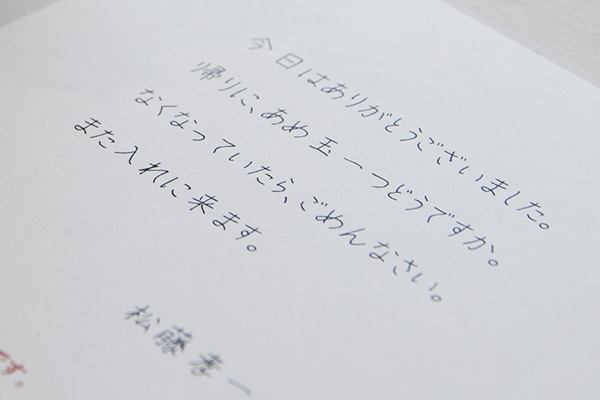 今日はありがとうございました。
帰りに、あめ玉一つどうですか。
なくなっていたら、ごめんなさい。
また入れに来ます。
松藤孝一
です。